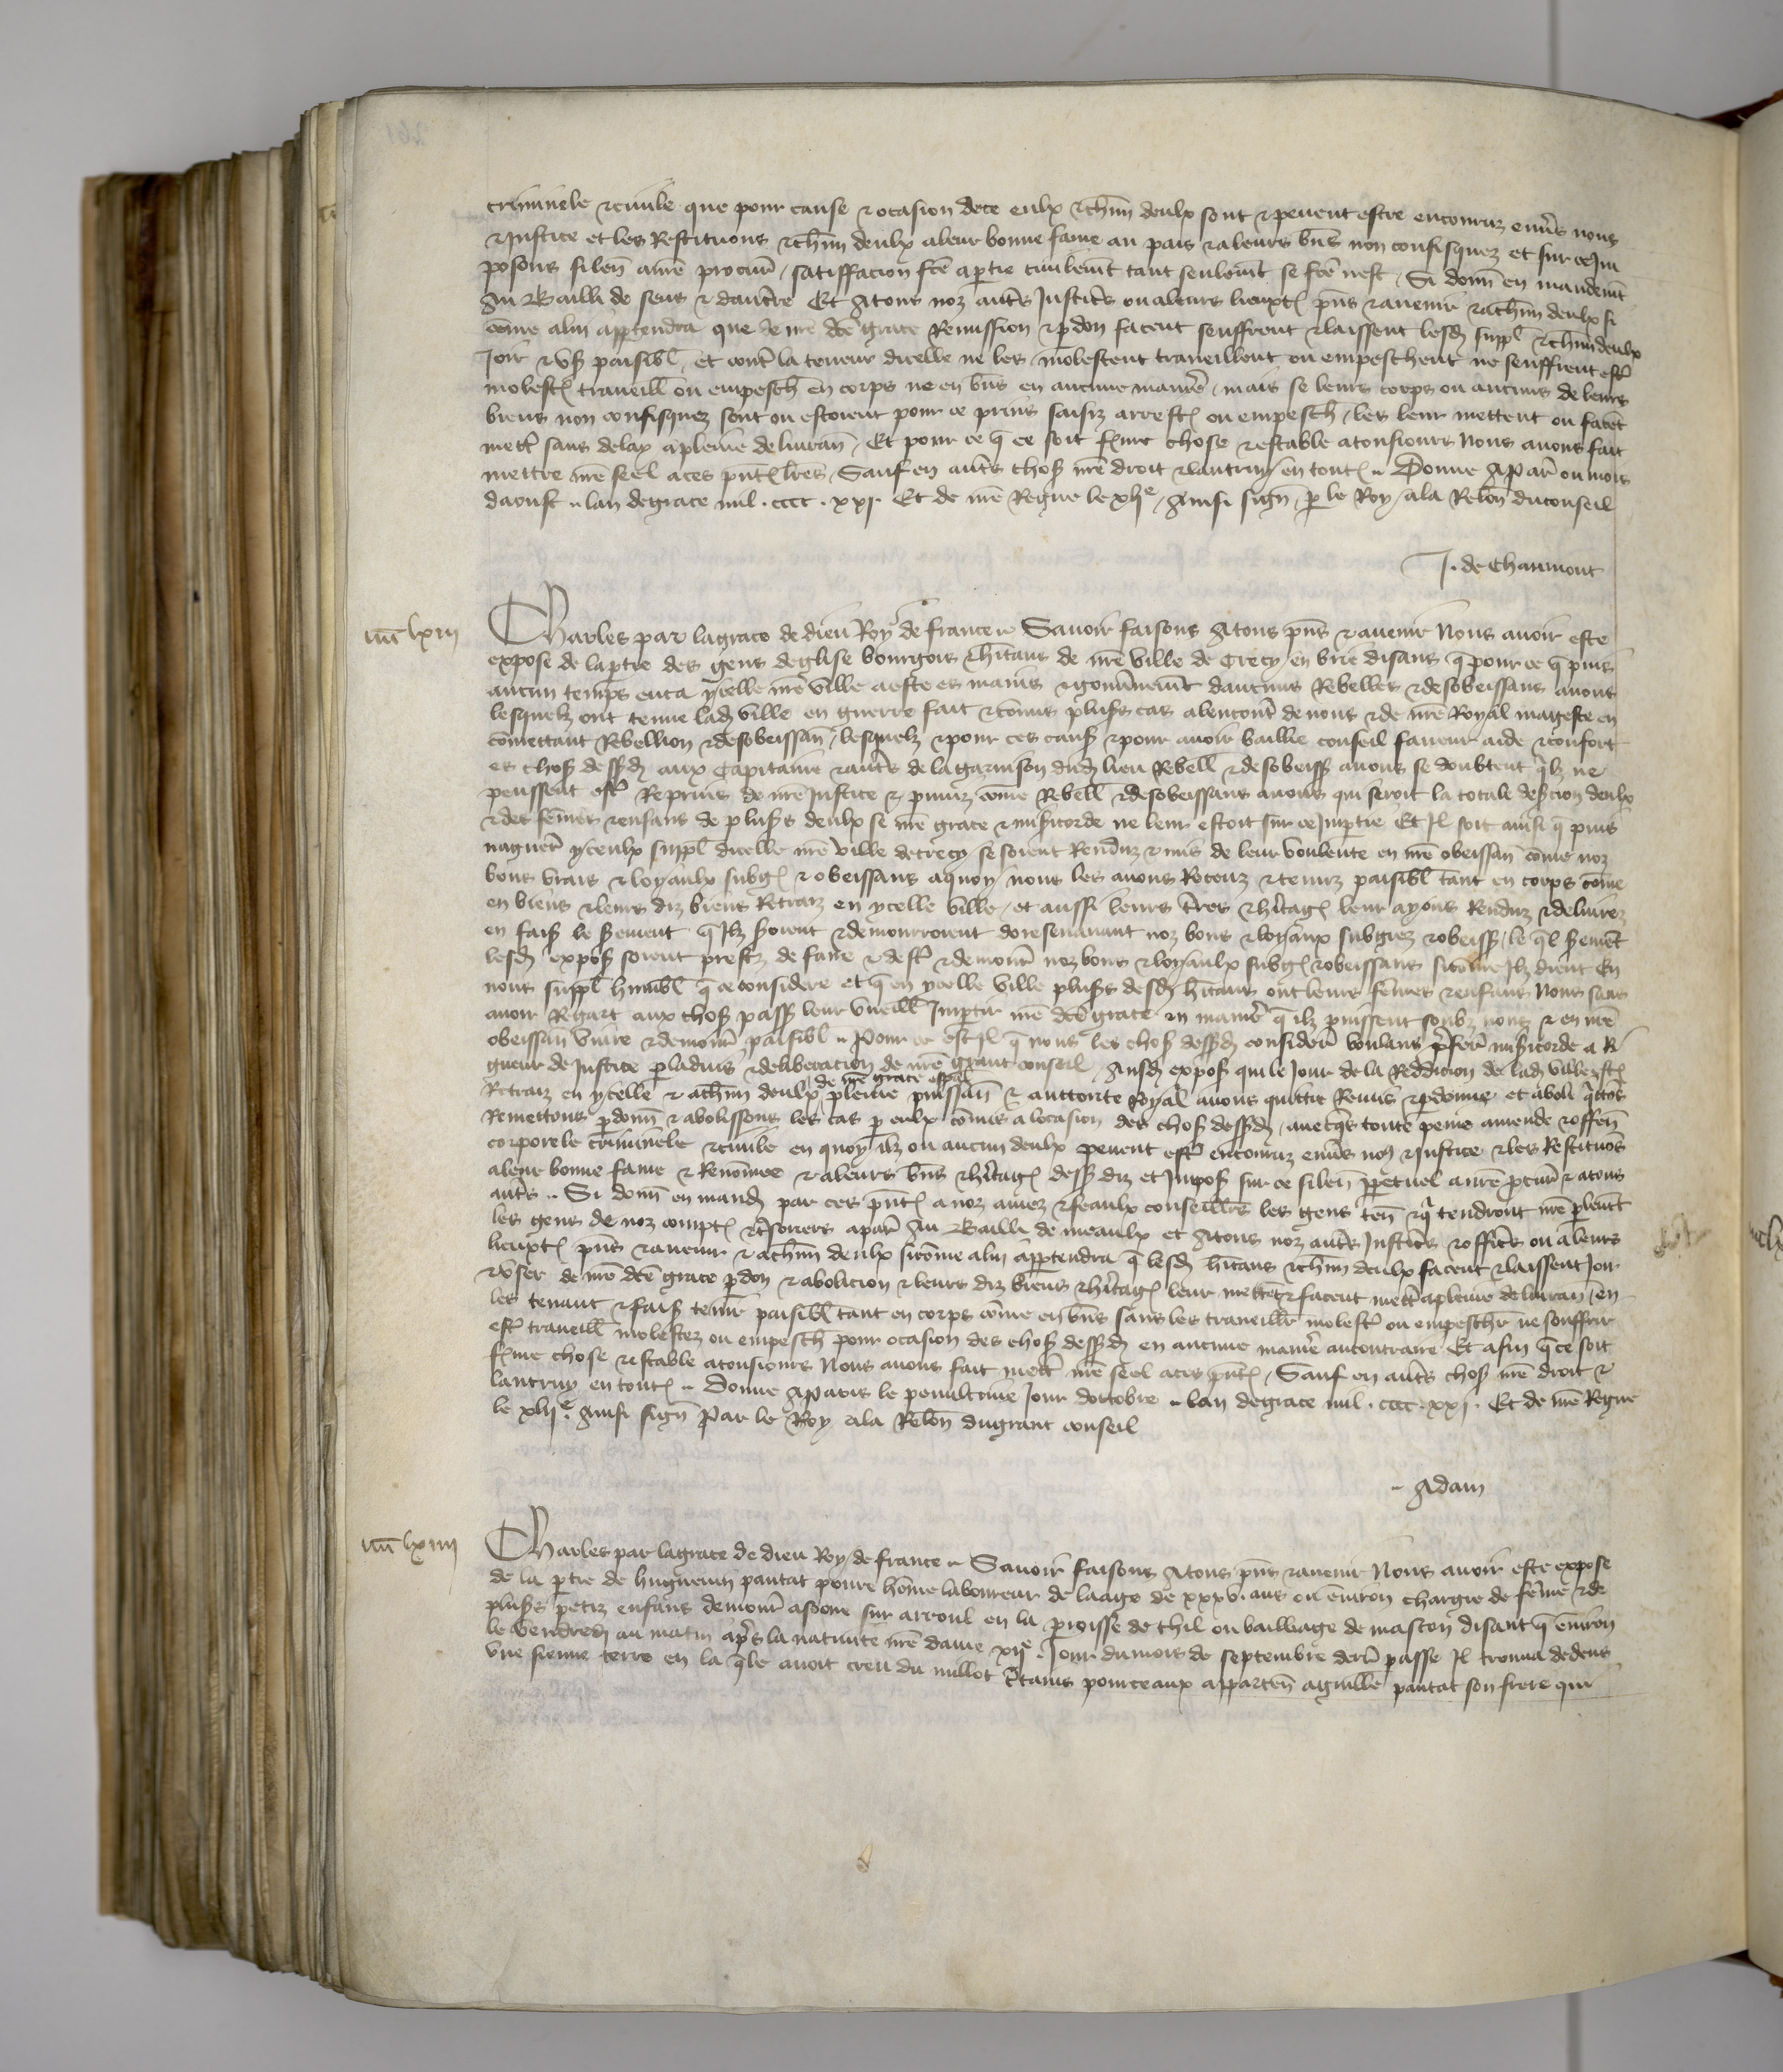 criminele et civile que pour cause et ocasion de ce eulx et chūn deulx sont et pevent estre encouruz env̄s nous
et Justice et les Restituons et chūn deulx a leur bonne fame au pais et a leurs biēs non confisquez et sur ce Im
posons silen̄ a nr̄e procur̄ / satisffacion fc̄e a ptie civilemt̄ tant seulemt̄ se fc̄e nest / Si donn̄ en mandemt̄
Au Bailli de sens et daucer̄re Et A tous noz autr̄s Justicīs ou a leurs lieuxten̄ pn̄s et avenir et a chūn deulx si
cōme a lui app̄tendra que de nr̄e dc̄e grace Remission et pdon facent seuffrent et laissent lesd̄ suppl̄ et chūn deulx
Joir et us̄ paisibl̄ et contr̄ la teneur dicelle ne les molestent traveillent ou empeschent ne seuffrent estr̄
molest̄ traveill̄ ou empesch̄ en corps ne en biēs en aucune manier̄e / mais se leurs corps ou aucuns de leurs
biens non confisquez sont ou estoient pour ce prins saisiz arrest̄ ou empesch̄ / les leur mettent ou facēt
mettr̄ sans delay a pleine delivran̄ / Et pour ce q̄ ce soit ferme chose et estable a tousiours Nous avons fait
mettre nr̄e seel a ces pn̄t̄ lr̄es / Sauf en autr̄s chos̄ nr̄e droit et lautruy en tout̄ Donne A Par̄ ou mois
daoust lan de grace mil . cccc . xxj . Et de nr̄e Regne le xlje / Ainsi sign̄ / p le Roy / a la Relōn du conseil
J. de Chaumont
iiiic lxiii
Charles par la grace de dieu Roy de france Savoir faisons A tous pn̄s et avenir Nous avoir este
expose de la ptie des gens deglise bourgois et hītans de nr̄e ville de Crecy en brie disans q̄ pour ce q̄ puis
aucun temps enca ycelle nr̄e ville a este es mains et gouv̄nemt̄ daucuns Rebelles et desobeissans a nous
lesquelz ont tenue lad̄ ville en guerre fait et cōmis plusrs cas a lencontr̄ de nous et de nr̄e Royal mageste en
cōmettant Rebellion et desobeissan̄ / lesquelz et pour ces caus̄ et pour avoir baillie conseil faveur aide et confort
es chos̄ dessusd̄ aux Capitaine et autr̄s de la garnison dud̄ lieu Rebell̄ et desobeiss̄ a nous se doubtent q̄lz ne
peussent estr̄ Reprins de nr̄e Justice et pmiz cōme Rebell̄ et desobeissans a nous qui seroit la totale destruccion deulx
et des fēmes et enfans de plusrs deulx se nr̄e grace et misericorde ne leur estoit sur ce Imptie Et Il soit ainsi q̄ puis
naguer̄ yceulx suppl̄ dicelle nr̄e ville de crecy se soient Renduz et mis de leur voulente en nr̄e obeissan̄ cōme noz
bons vrais et loyaulx subget̄ et obeissans a quoy nous les avons Receuz et tenuz paisibl̄ tant en corps cōme
en biens et leurs diz biens Retraiz en ycelle ville / et aussi leurs terres et hītaḡ leur ayons Renduz et delivrez
en fais̄ le serement q̄ Ilz seroient et demourroient doresenavant noz bons et loyaux subgiez et obeiss̄ / le q̄l seremēt
lesd̄ expos̄ soient prestz de faire et destr̄ et demourr̄ noz bons et loyaulx subget̄ et obeissans sicōme Ilz dient En
nous suppl̄ humbl̄ q̄ ce considere et q̄ en ycelle ville plusrs desd̄ hītans ont leurs fēmes et enfans Nous sans
avoir Regart aux chos̄ pass̄ leur vueill̄ Imptir nr̄e dc̄e grace en manier̄e q̄ ilz puissent soubz nous et en nr̄e
obeissan̄ vivre et demour̄ paisibl̄ Pour ce est Il q̄ nous les chos̄ dessusd̄ consider̄ voulans prefer̄ misericorde a Ri
gueur de Justice p ladvis et deliberacion de nr̄e grant conseil / Ausd̄ expos̄ qui le Jour de la Reddicion de lad̄ ville est̄
Retraiz en ycelle et a chūn deulx de nr̄e grace espāl pleine puissan̄ et auctorite Royal avons quittie Remis et pdonne et aboli q̄ttons
Remettons pdonn̄ et abolissons les cas p eulx cōmis a locasion des chos̄ dessusd̄ / avecqs toute peine amende et offen̄
corporele criminele et civile en quoy ilz ou aucun deulx pevent estr̄ encouruz env̄s nos et Justice et les Restituōs
a leur bonne fame et Renōmee et a leurs biēs et hītaḡ dessus diz et Impos̄ sur ce silen̄ ppetuel a nr̄e pcur̄ et a tous
autr̄s Si donn̄ en mand̄ par ces pn̄t̄ a noz amez et feaulx conseillers les gens ten̄ et q̄ tendront nr̄e plemt̄
les gens de noz compt̄ et tr̄soriers a par̄ Au Bailli de meaulx et A tous noz autr̄s Justicīs et officīs ou a leurs
lieuxten̄ pn̄s et avenir et a chūn deulx sicōme a lui app̄tendra q̄ lesd̄ hītans et chūn deulx facent et laissent Joir
et user de nr̄e dc̄e grace pdon et abolicion et leurs diz biens et hītaḡ leur mettēt et facent mettr̄ a pleine delivran̄ / en
les tenant et fais̄ tenir paisibl̄ tant en corps cōme en biēs sans les traveiller molestr̄ ou empescher ne souffrir
estr̄ traveill̄ molestez ou empesch̄ pour ocasion des chos̄ dessusd̄ en aucune manier̄e au contraire Et afin q̄ ce soit
ferme chose et estable a tousiours Nous avons fait mettr̄ nr̄e seel a ces pn̄t̄ / Sauf en autr̄s chos̄ nr̄e droit et
lautruy en tout̄ Donne A Paris le penultime Jour doctobre lan de grace mil . cccc . xxj . Et de nr̄e Regne
le xlije. Ainsi sign̄ Par le Roy a la Relōn du grant conseil
Adam
iiiic lxiiii
Charles par la grace de dieu Roy de france Savoir faisons A tous pn̄s et avenir Nous avoir este expose
de la ptie de huguenin pautat povre hōme laboureur de laage de xxxv. ans ou environ chargie de fēme et de
plusrs petiz enfans demour̄ a sur arcoul en la proisse de thil ou bailliage de mascon disant q̄ environ
le vendredi au matin apr̄s la nativite nr̄e dame xije. Jour du mois de septembre dern̄ passe Il trouva dedens
une sienne terre en la q̄le avoit creu du millot c̄tains pourceaux apparten̄ a guill̄e pautat son frere qui